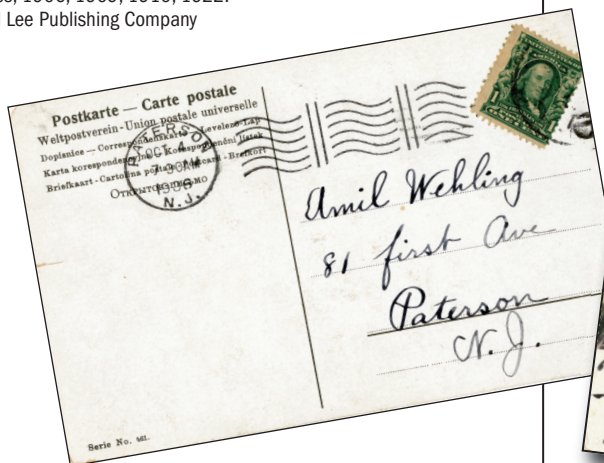 1906, 1909, 1910, 1922.
Lee Publishing Company
Postkarte — Carte postale
Weltpostverein - Union postale universelle
Dopisnice — Correspondenzkarte - Levelező-Lap
Karta korespondencyjna - Korespondenční lístek
Briefkaart - Cartolina postale - Postcard - Brefkort
Открытое письмо
PATERSON
OCT 4
N. J.
Amil Wehling
81 first Ave
Paterson
N. J.
Serie No.